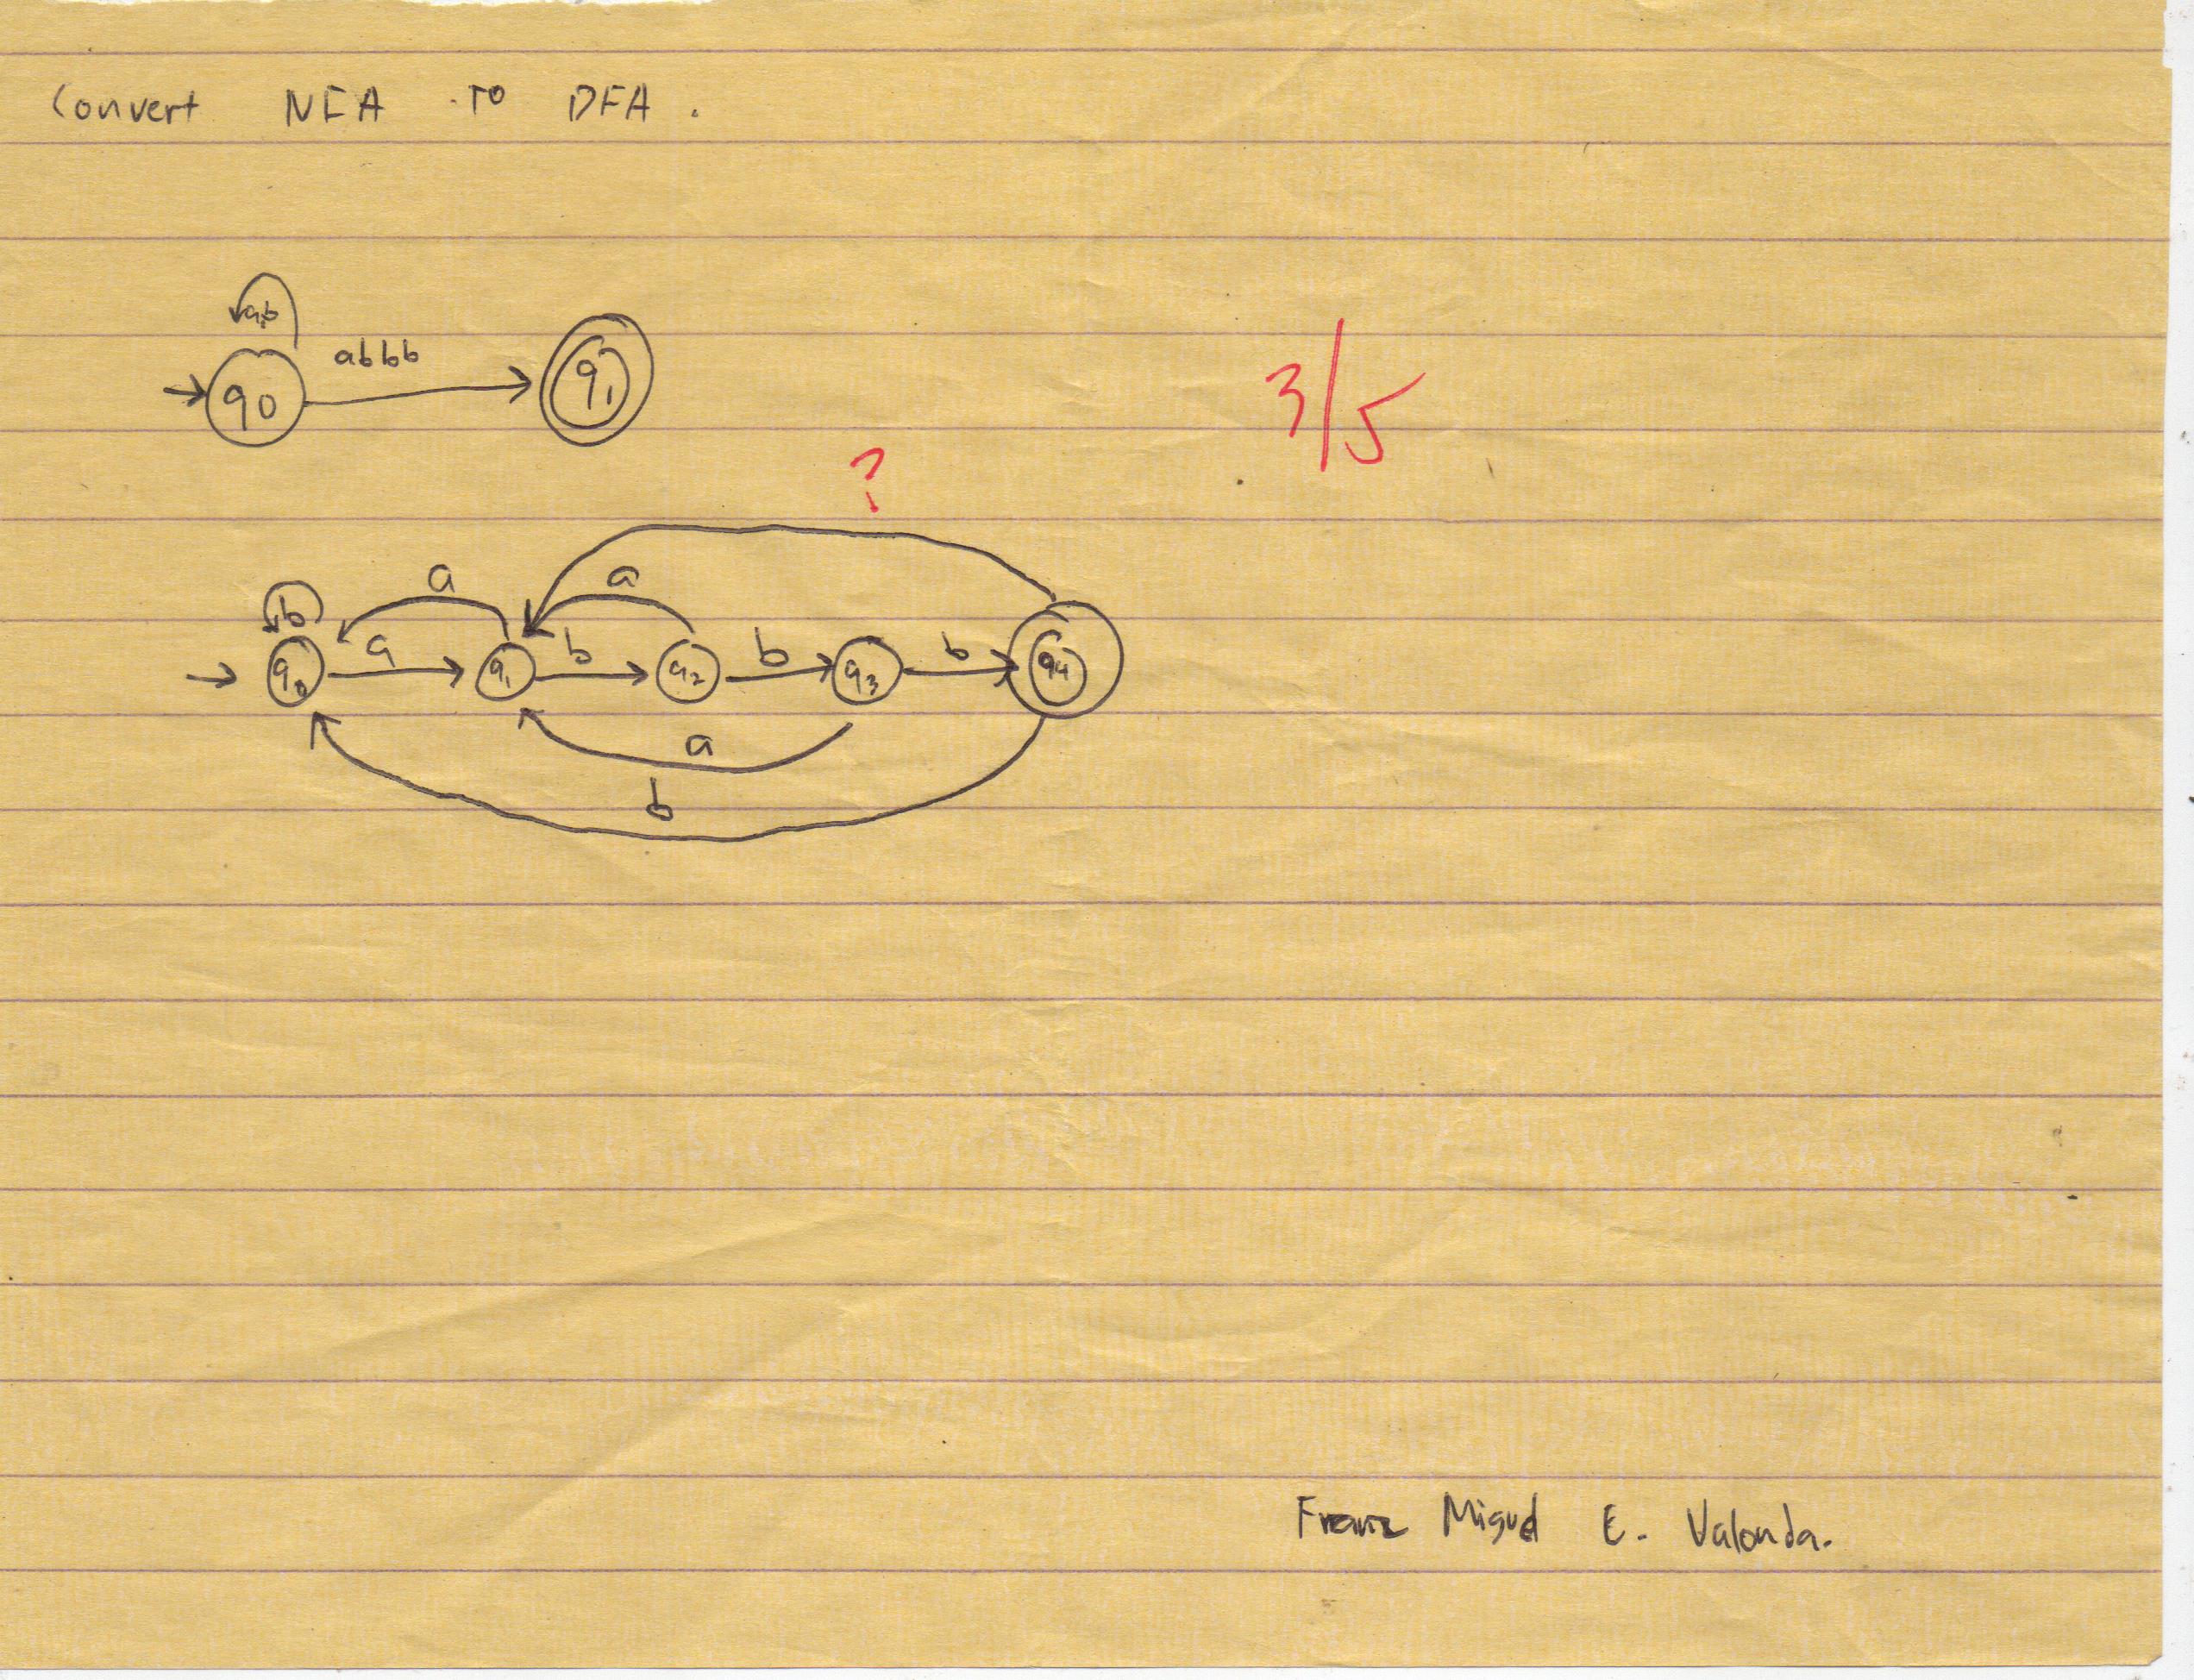 Convert NFA TO DFA.
ab
abbb
q0 q1
3/5
?
a a
b
a b b b
q0 q1 q2 q3 q4
a
b
Miguel E. Valonda.